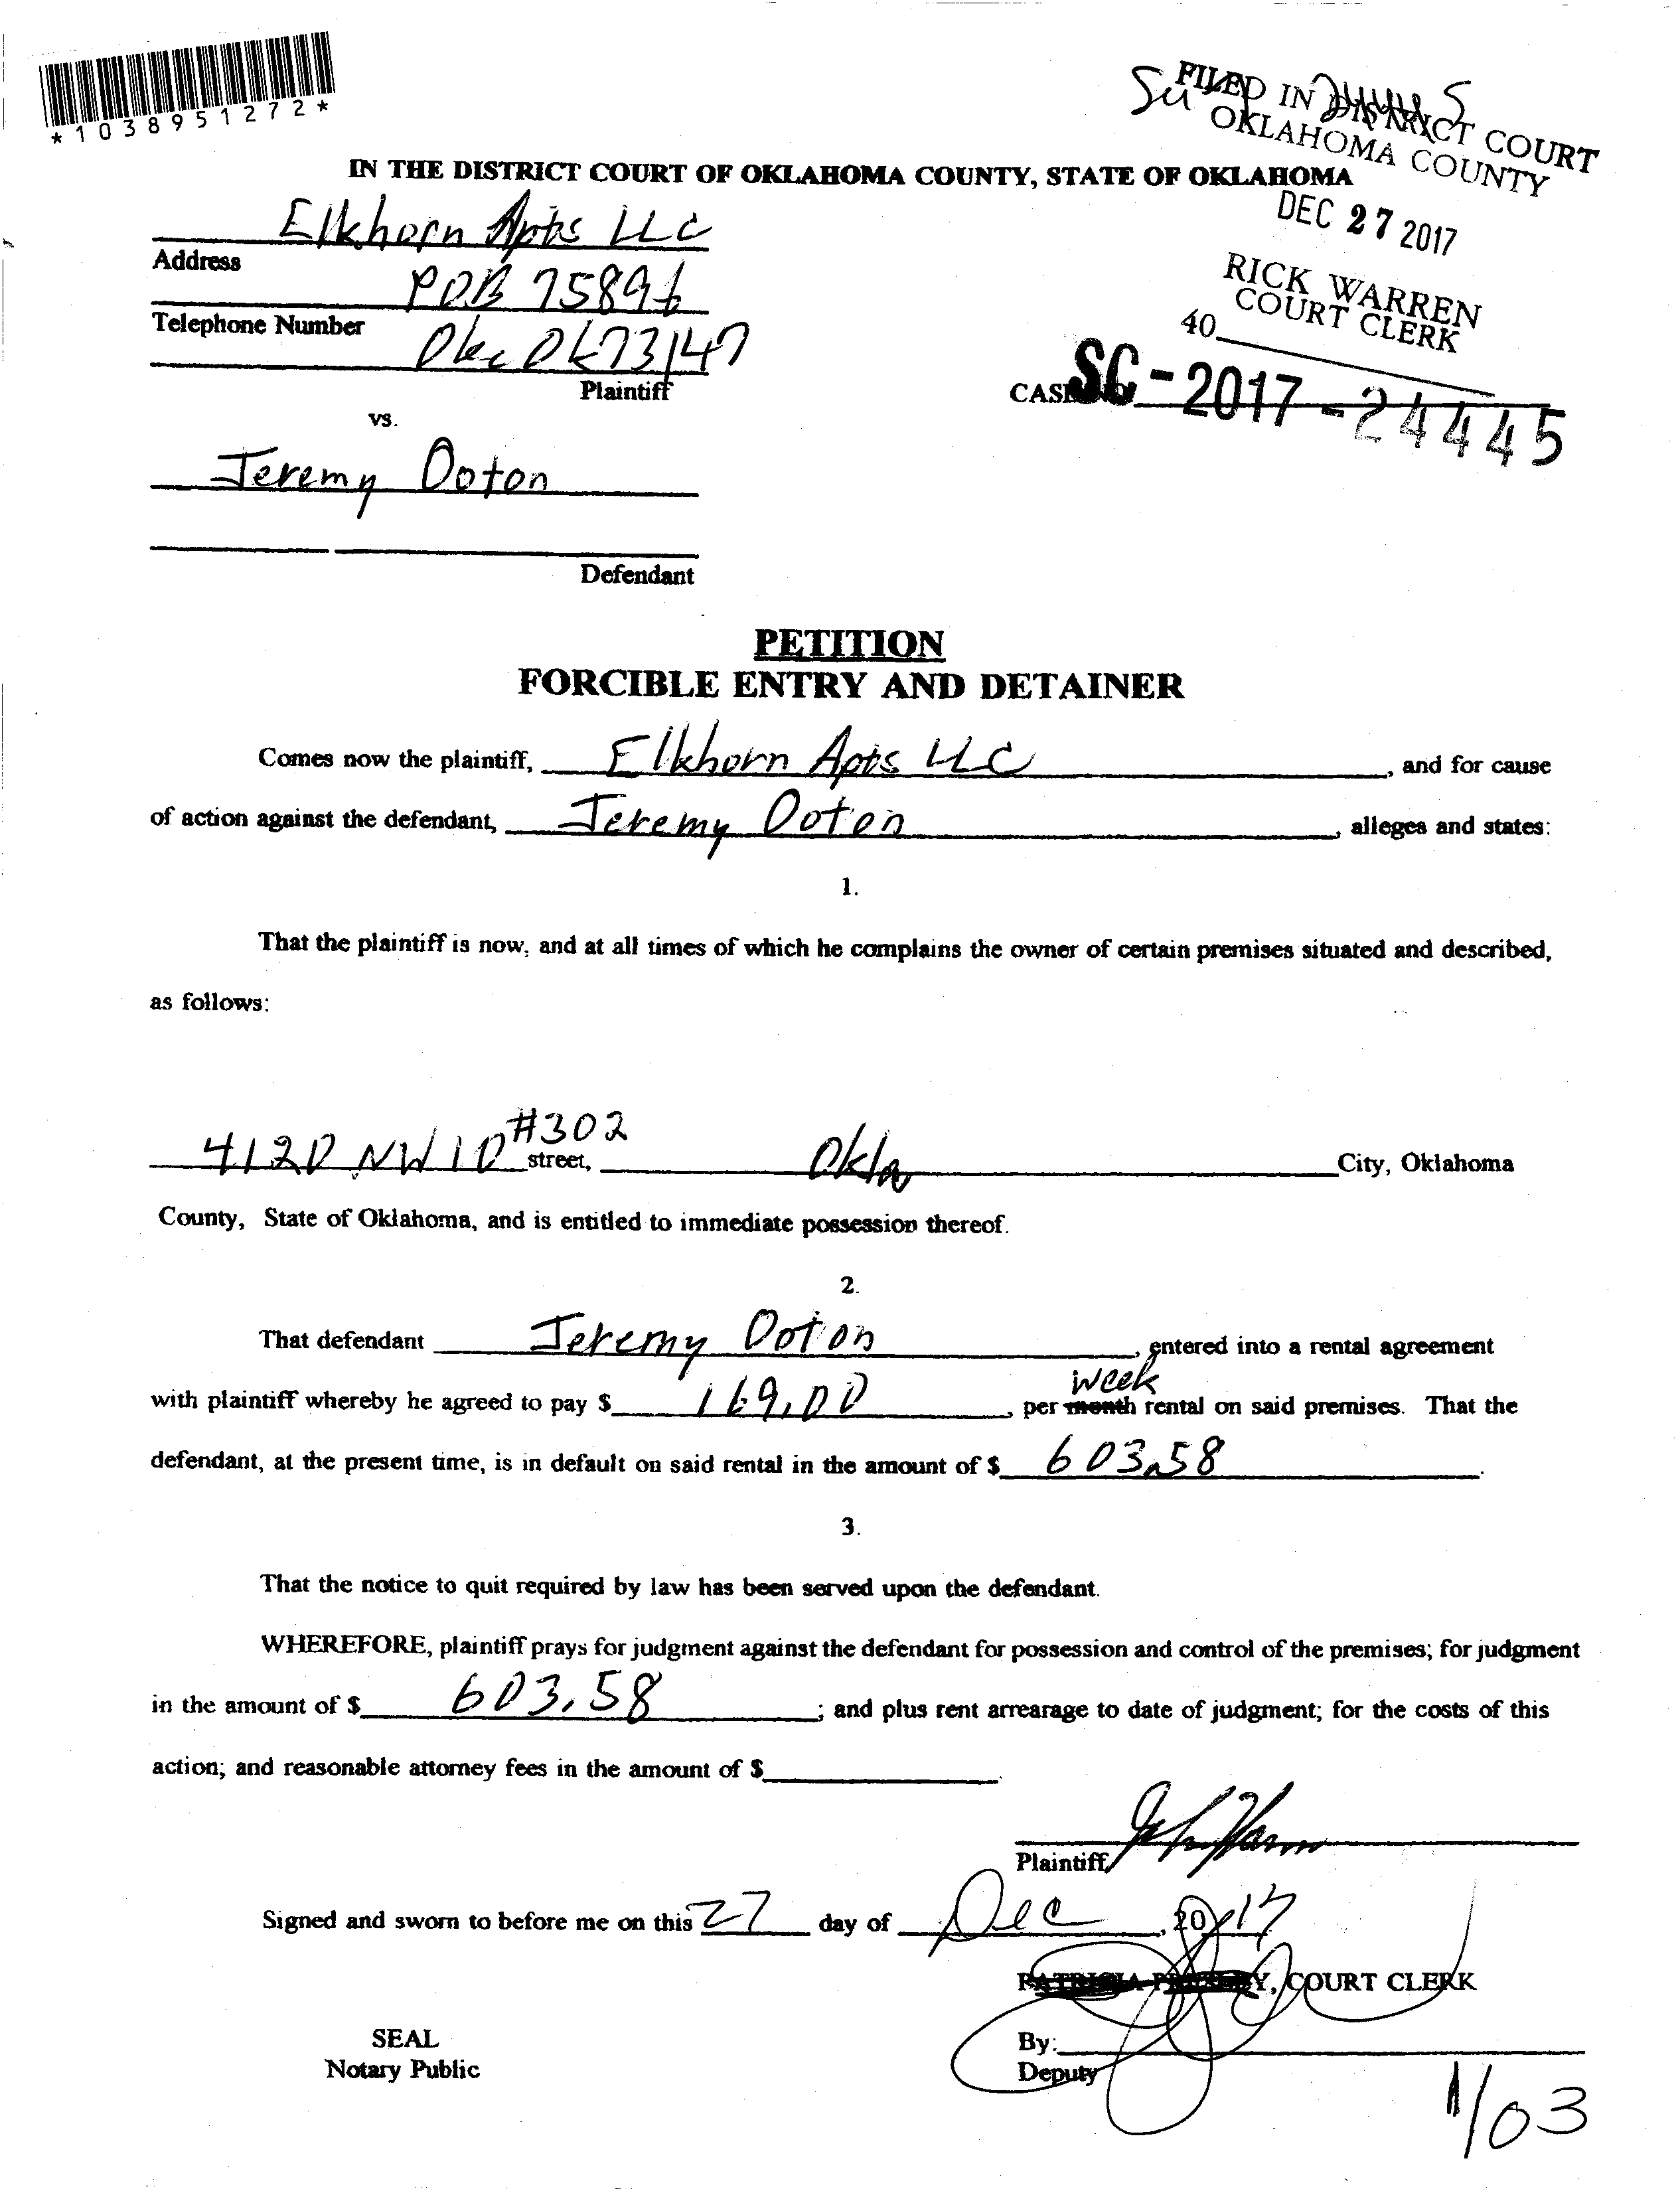 *1038951272*
FILED IN DISTRICT COURT
OKLAHOMA COUNTY
IN THE DISTRICT COURT OF OKLAHOMA COUNTY, STATE OF OKLAHOMA
DEC 27 2017
Elkhorn Apts LLC
Address
RICK WARREN
COURT CLERK
POB 75896
Telephone Number
40
Okc Ok 73147
Plaintiff
CASE SC-2017-24445
vs.
Jeremy Ooton
Defendant
PETITION
FORCIBLE ENTRY AND DETAINER
Comes now the plaintiff, Elkhorn Apts LLC, and for cause
of action against the defendant, Jeremy Ooton, alleges and states:
1.
That the plaintiff is now, and at all times of which he complains the owner of certain premises situated and described,
as follows:
4120 NW 10 #302 street, Okla City, Oklahoma
County, State of Oklahoma, and is entitled to immediate possession thereof.
2.
That defendant Jeremy Ooton, entered into a rental agreement
week
with plaintiff whereby he agreed to pay $ 169.00, per month rental on said premises. That the
defendant, at the present time, is in default on said rental in the amount of $ 603.58.
3.
That the notice to quit required by law has been served upon the defendant.
WHEREFORE, plaintiff prays for judgment against the defendant for possession and control of the premises; for judgment
in the amount of $ 603.58; and plus rent arrearage to date of judgment; for the costs of this
action; and reasonable attorney fees in the amount of $
Plaintiff
Signed and sworn to before me on this 27 day of Dec, 2017
PATRICIA PRESLEY, COURT CLERK
SEAL
By:
Notary Public
Deputy
1/03